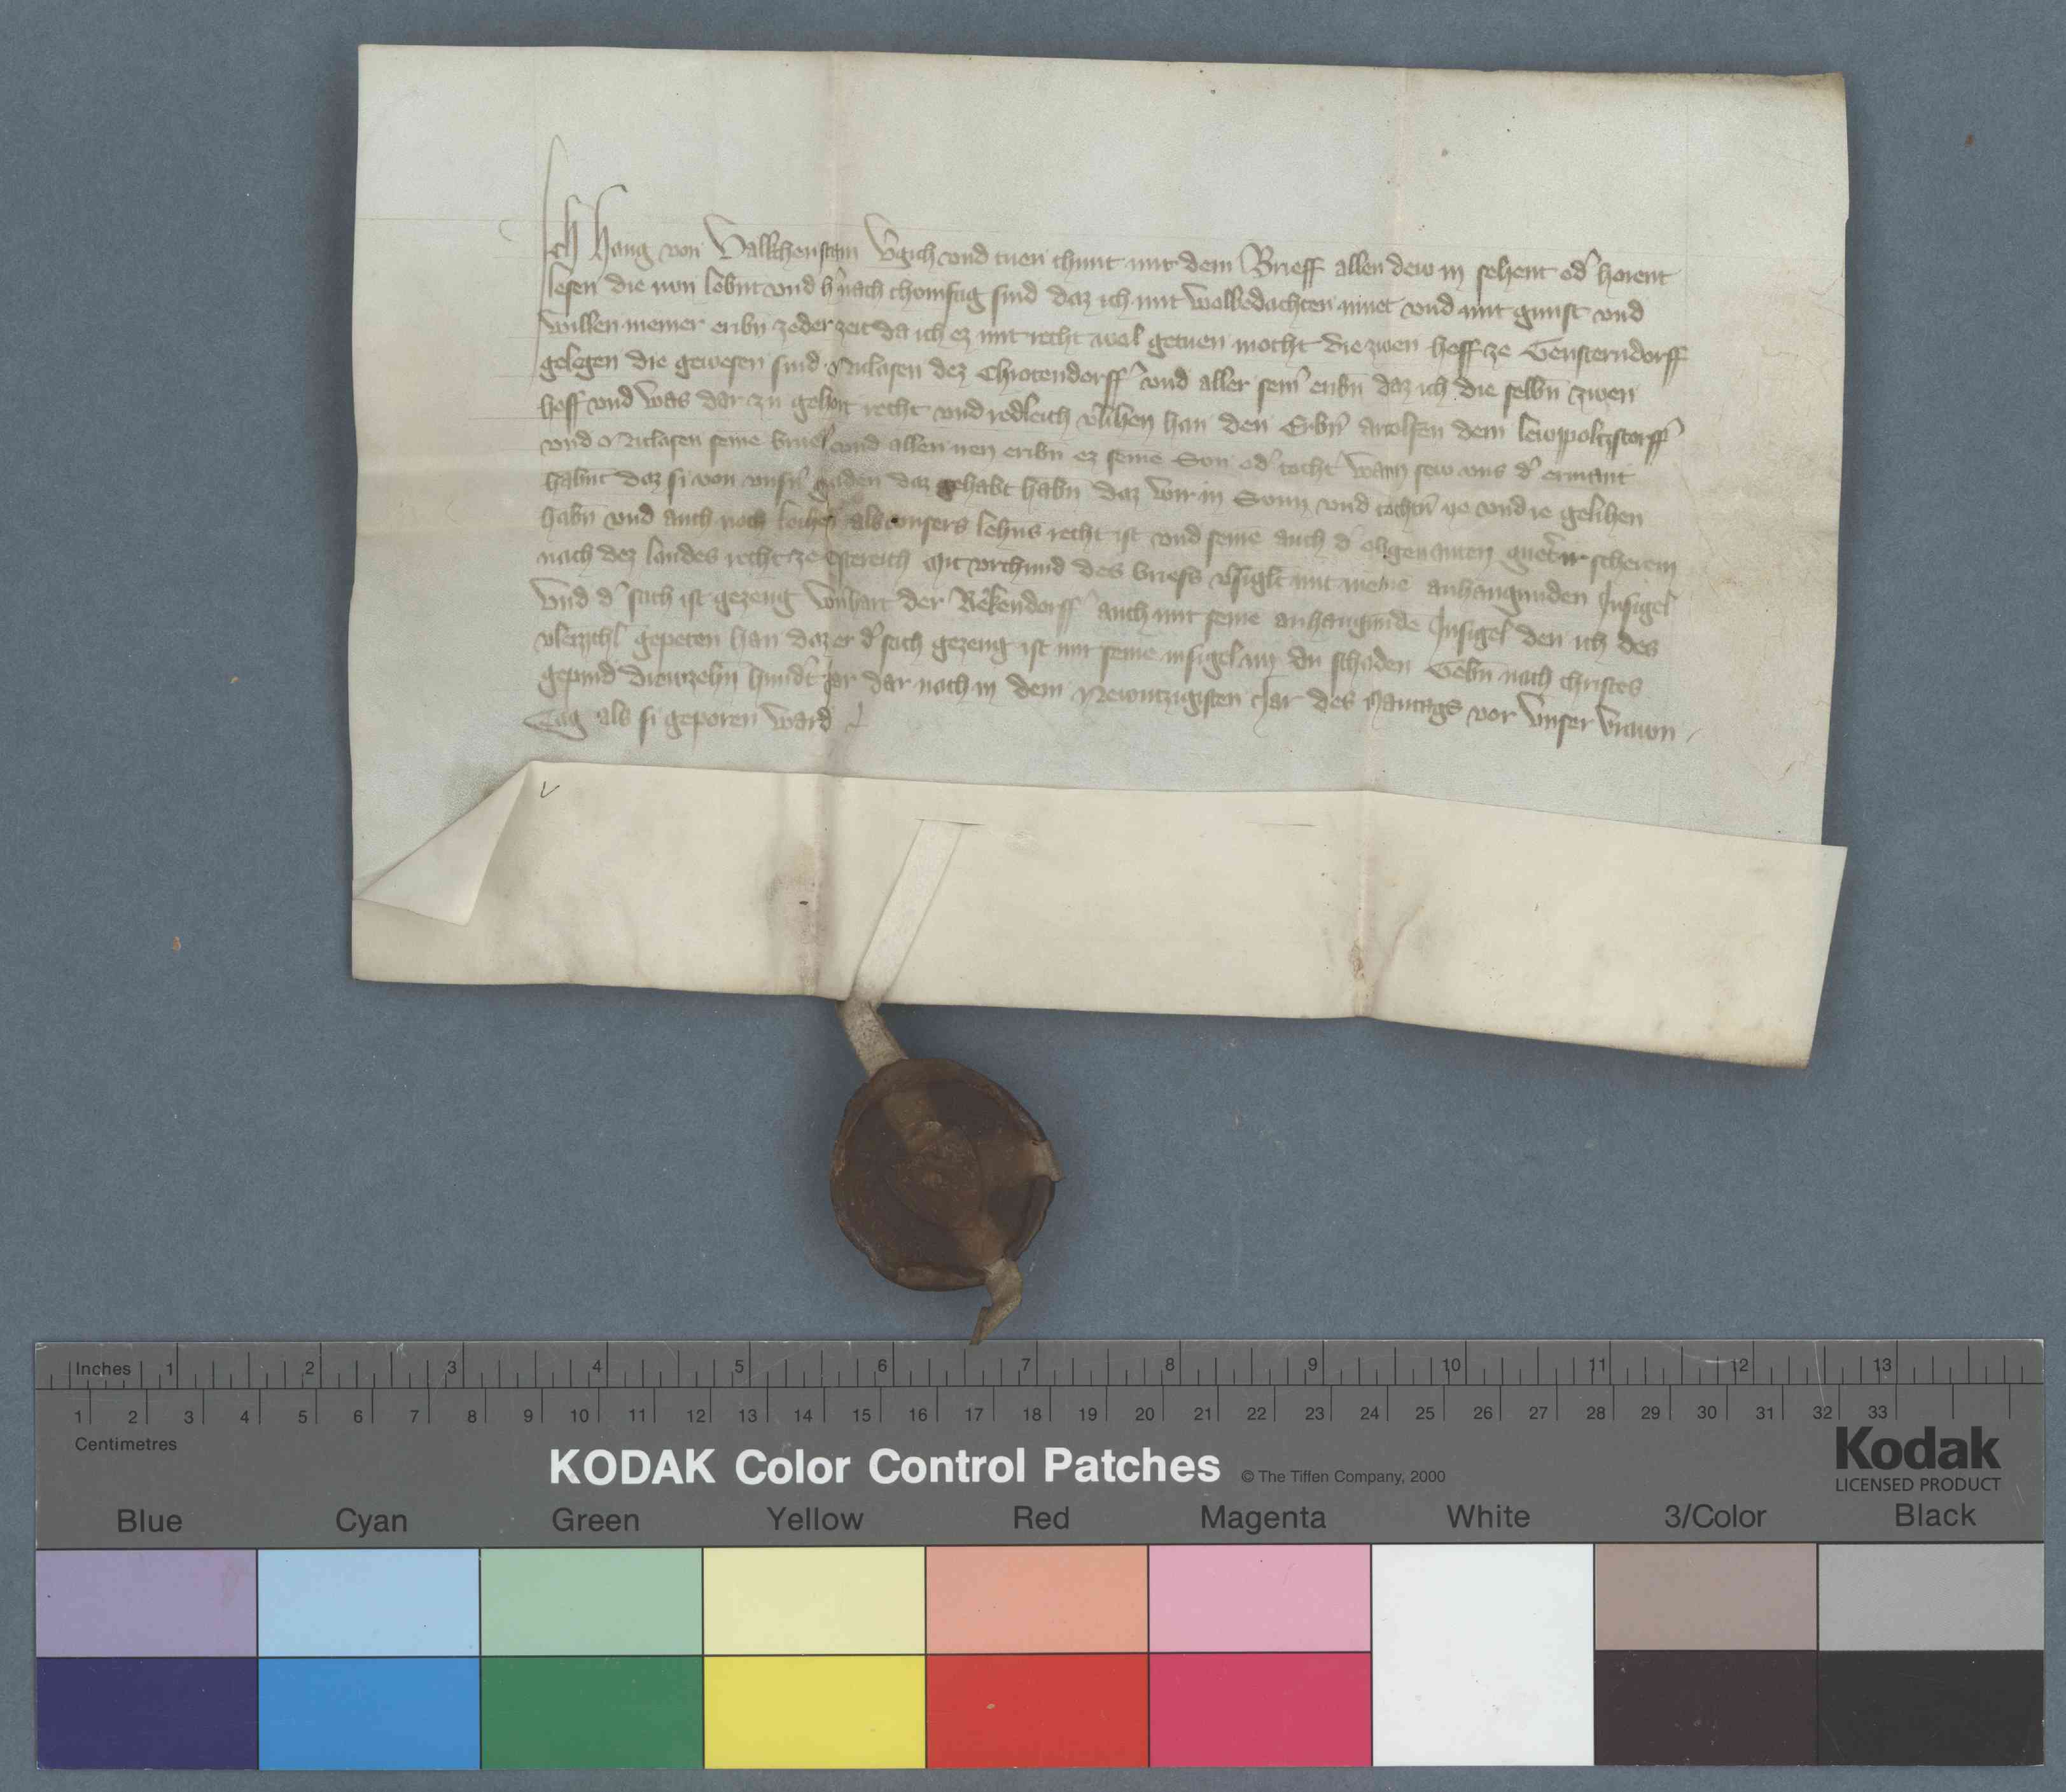 Ich Haug von Valkchenstain v'gich vnd tuen chunt mit dem Brieff allen dew in sehent od' horent
lesen die nun lebnt vnd h'nach chomftig sind daz ich mit wolbedachten muet vnd mit gunst vnd
willen meiner eribn zeder zeit da ich ez mit recht wol getuen mocht die zwen hoff ze Gensterndorff
gelegen die gewesen sind Niclasen dez Chrotendorff' vnd aller sein' eribn daz ich die selbn zwen
hoff vnd was dar zu gehort recht vnd redleich v'lihen han den Erbn' Artolfen dem lewppoltzstorff'
vnd Niclasen seinē brued' vnd allen iren eribn ez seinē Sön od' tocht' wann sew vns d' ermant
habnt daz si von vnsn' gnaden daz gehabt habn daz wir in Sönn vnd töchtn' ye vnd ie gelihen
habn vnd auch noch leihen als vnsers lehns recht ist vnd seinē auch d' obgenanten guet' ir scherem
nach dez landes recht ze Ostereich Mit vrchund des briefs v'siglt mit meinē anhangunden Insigel
Vnd d' sach ist gezeug der Rekendorff' auch mit seinē anhangundē Insigel den ich des
vleizzichl' gepeten han daz er d' sach gezeug ist mit seinē insigel im an schaden Gebn nach christes
gepurd Drewzehn hundt' Jar dar nach in dem Newntzigisten Jar des Mantags vor Vnser Vrawn
Tag als si geporen ward
Inches 1 2 3 4 5 6 7 8 9 10 11 12 13
1 2 3 4 5 6 7 8 9 10 11 12 13 14 15 16 17 18 19 20 21 22 23 24 25 26 27 28 29 30 31 32 33
Centimetres
KODAK Color Control Patches © The Tiffen Company, 2000 Kodak
LICENSED PRODUCT
Blue Cyan Green Yellow Red Magenta White 3/Color Black